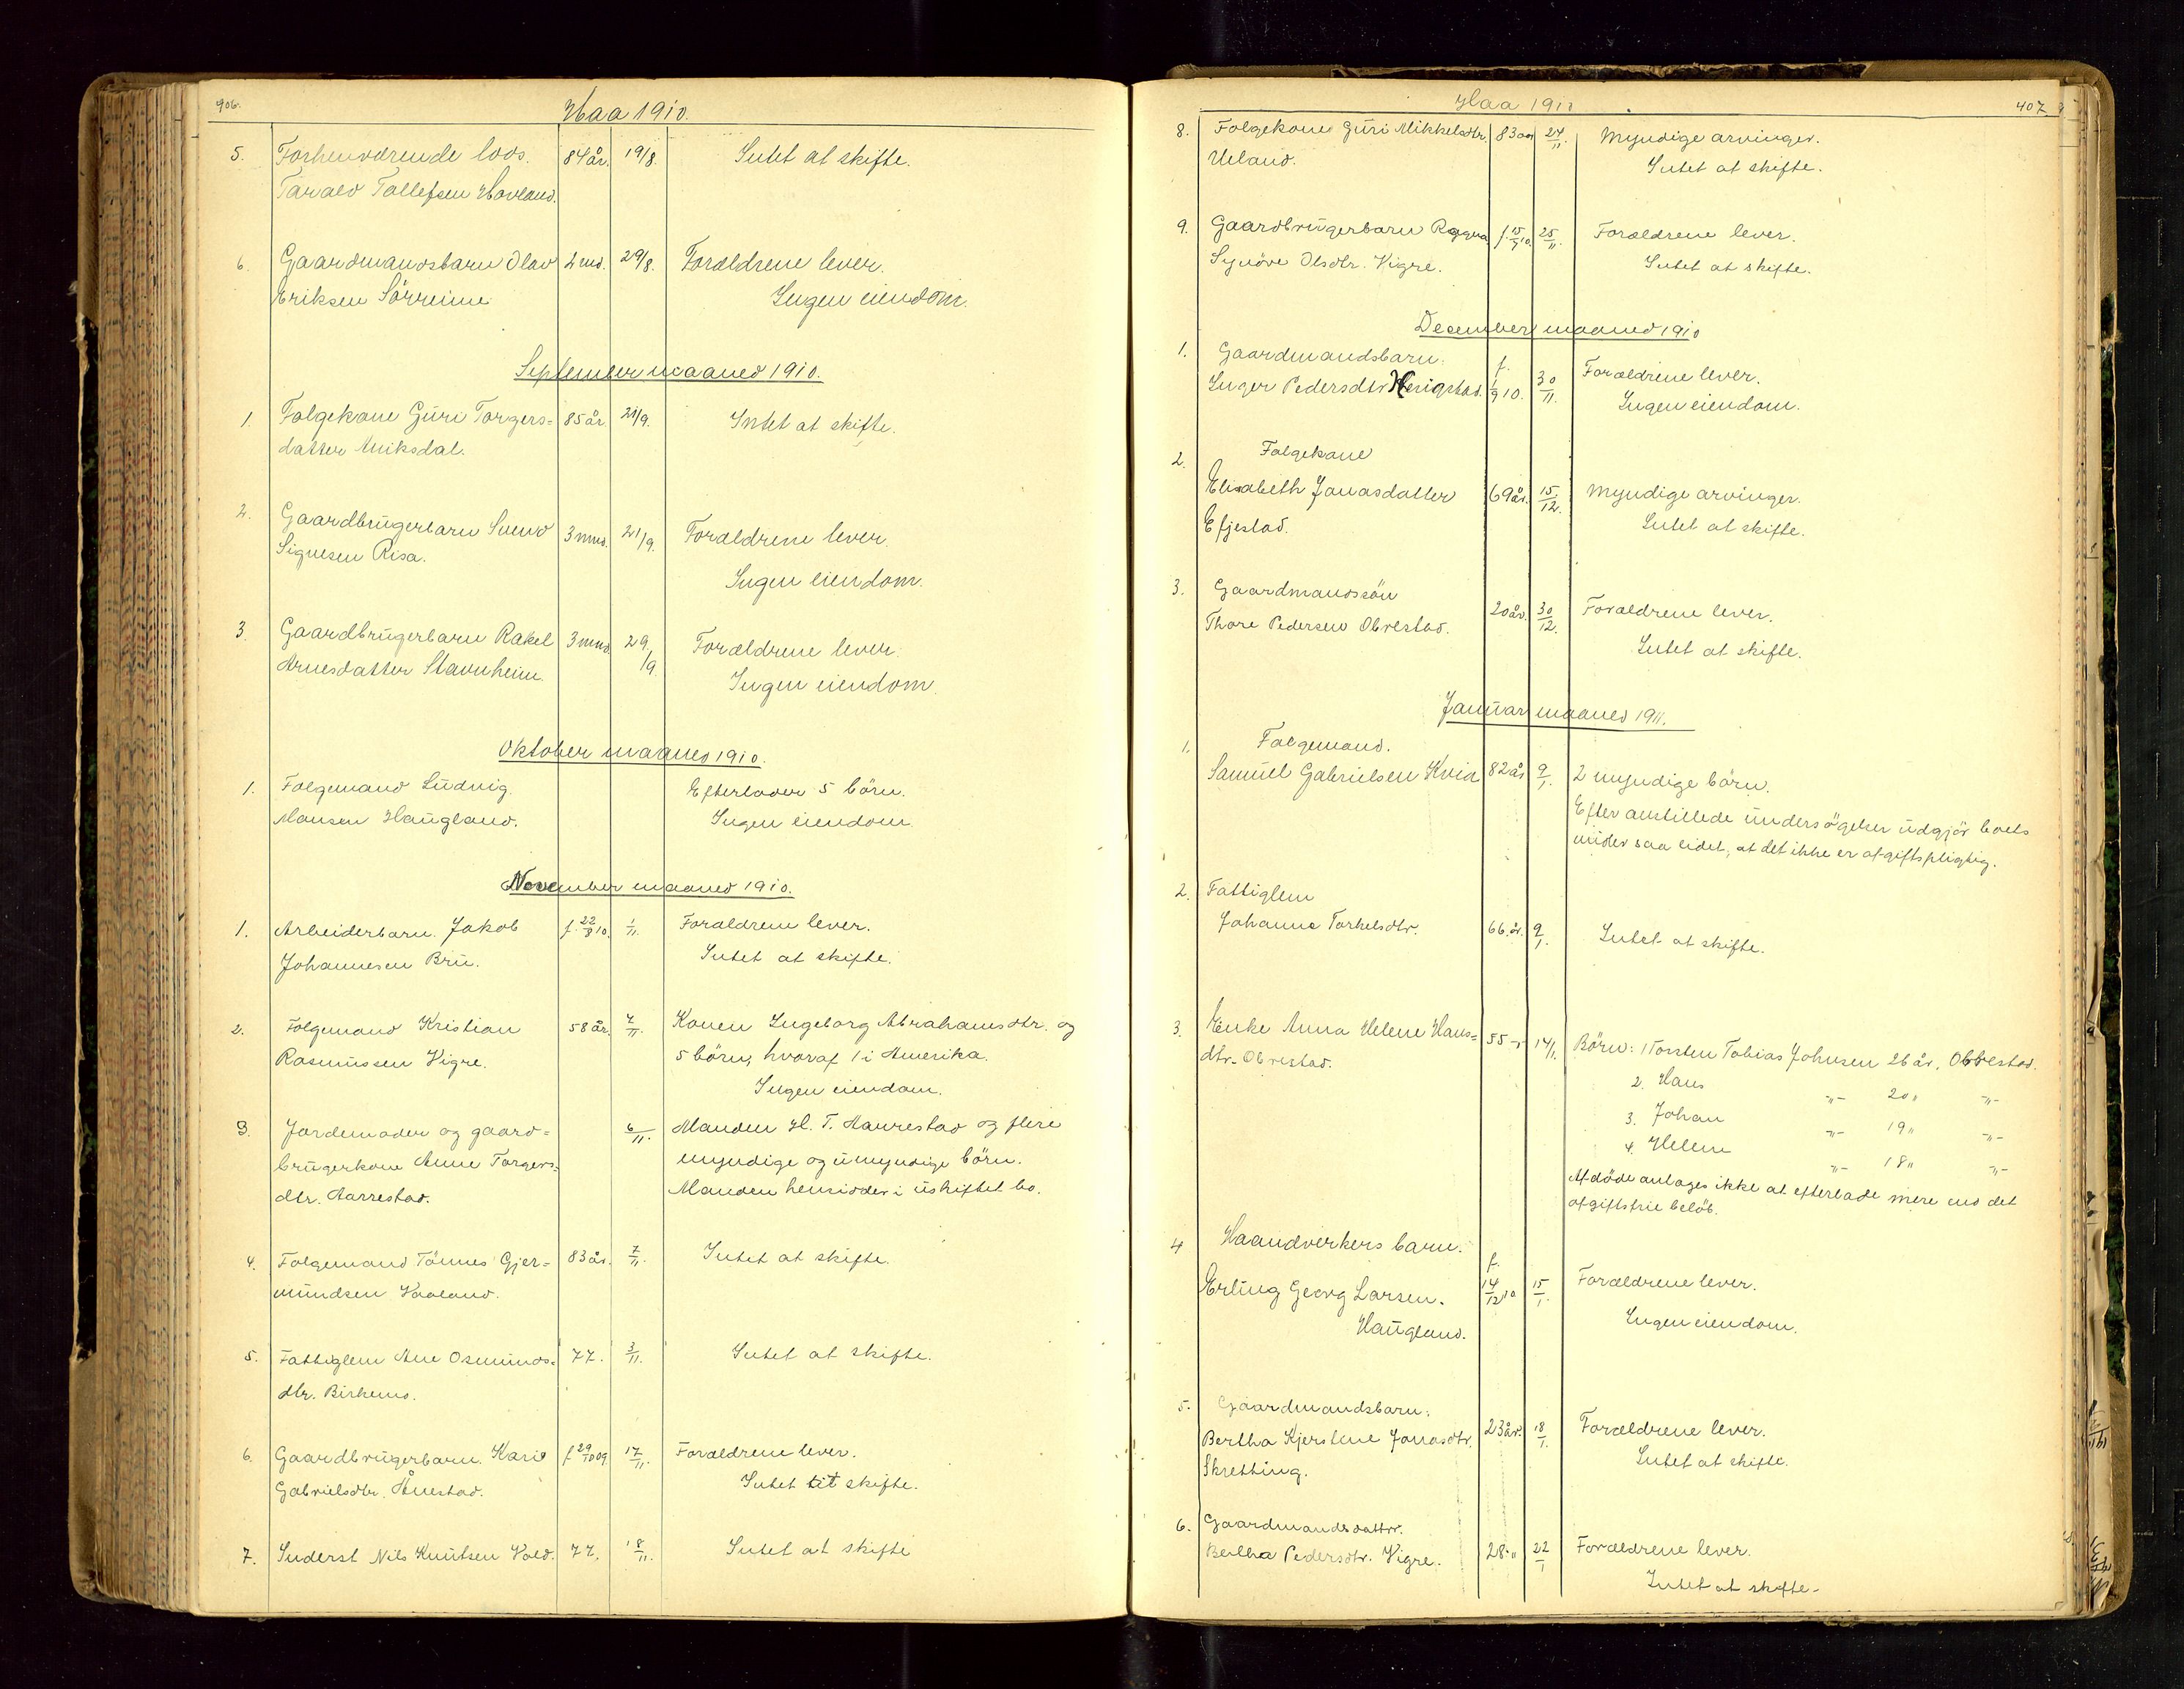 906.
Haa 1910.
5. Forhenværende loos. 84 år. 19/8. Intet at skifte.
Tarald Tollefsen Hovland.
6. Gaardmandsbarn Olav 2 md. 29/8. Forældrene lever.
Eriksen Sörreime Ingen eiendom.
September maaned 1910.
1. Folgekone Guri Torgers= 85 år. 21/9. Intet at skifte.
datter Auiksdal.
2. Gaardbrugerbarn Svend 3 mnd. 21/9. Forældrene lever.
Signesen Risa. Ingen eiendom.
3. Gaardbrugerbarn Rakel 3 mnd. 29/9. Forældrene lever.
Arnesdatter Stavnheim. Ingen eiendom.
Oktober maaned 1910.
1. Folgemand Ludvig Efterlader 5 börn.
Monsen Haugland. Ingen eiendom.
November maaned 1910.
1. Arbeiderbarn Jakob f. 22/8 10. 1/11. Forældrene lever.
Johannesen Bru. Intet at skifte.
2. Folgemand Kristian 58 år. 4/11. Konen Ingeborg Abrahamsdtr. og
Rasmussen Vigre. 5 börn, hvoraf 1 i Amerika.
Ingen eiendom.
3. Jordemoder og gaard= 6/11. Manden H. T. Aarrestad og flere
brugerkone Anne Torgers= myndige og umyndige börn.
dtr. Aarrestad. Manden hensidder i uskiftet bo.
4. Folgemand Tönnes Gjer= 83 år. 7/11. Intet at skifte.
mundsen Voaland.
5. Fattiglem Ane Osmunds= 77. 3/11. Intet at skifte.
dtr. Birkemo.
6. Gaardbrugerbarn Kari f 29/10 09. 17/11. Forældrene lever.
Gabrielsdtr. Ånestad. Intet at skifte.
7. Inderst Nils Knutsen Vold. 77. 18/11. Intet at skifte
Haa 1910
407
8. Folgekone Guri Mikkelsdtr. 83 aar 24/11. Myndige arvinger.
Ueland. Intet at skifte.
9. Gaardbrugerbarn Ragna f. 15/9 10. 25/11. Forældrene lever.
Synöve Olsdtr. Vigre. Intet at skifte.
December maaned 1910
1. Gaardmandsbarn. f.
Inger Pedersdtr Herigstad. 1/9 10. 30/11. Forældrene lever.
Ingen eiendom.
2. Folgekone
Elisabeth Jonasdatter 69 år. 15/12. Myndige arvinger.
Efjestad. Intet at skifte.
3. Gaardmandssön
Thore Pedersen Obrestad. 20 år. 30/12. Forældrene lever.
Intet at skifte.
Januar maaned 1911.
1. Folgemand.
Samuel Gabrielsen Kvia 82 år 9/1. 2 myndige börn.
Efter anstillede undersögelser udgjör boets
midler saa lidet, at det ikke er afgiftspligtig.
2. Fattiglem
Johanne Torkelsdtr. 66 år. 9/1. Intet at skifte.
3. Enke Anna Helene Hans= 55 -"- 14/1. Börn: 1 Torsten Tobias Johnsen 26 år, Obrestad.
dtr. Obrestad. 2. Hans -"- 20 " -"-
3. Johan -"- 19 " -"-
4. Helene -"- 18 " -"-
Afdöde antages ikke at efterlade mere end det
afgiftsfrie belöb.
4 Haandverkers barn. f.
Erling Georg Larsen. 14/12 10 15/1. Forældrene lever.
Haugland. Ingen eiendom.
5. Gaardmandsbarn.
Bertha Kjerstine Jonasdtr. 23 år. 18/1. Forældrene lever.
Skretting. Intet at skifte.
6. Gaardmandsdatter.
Bertha Pedersdtr. Vigre. 28 " 22/1 Forældrene lever.
Intet at skifte.